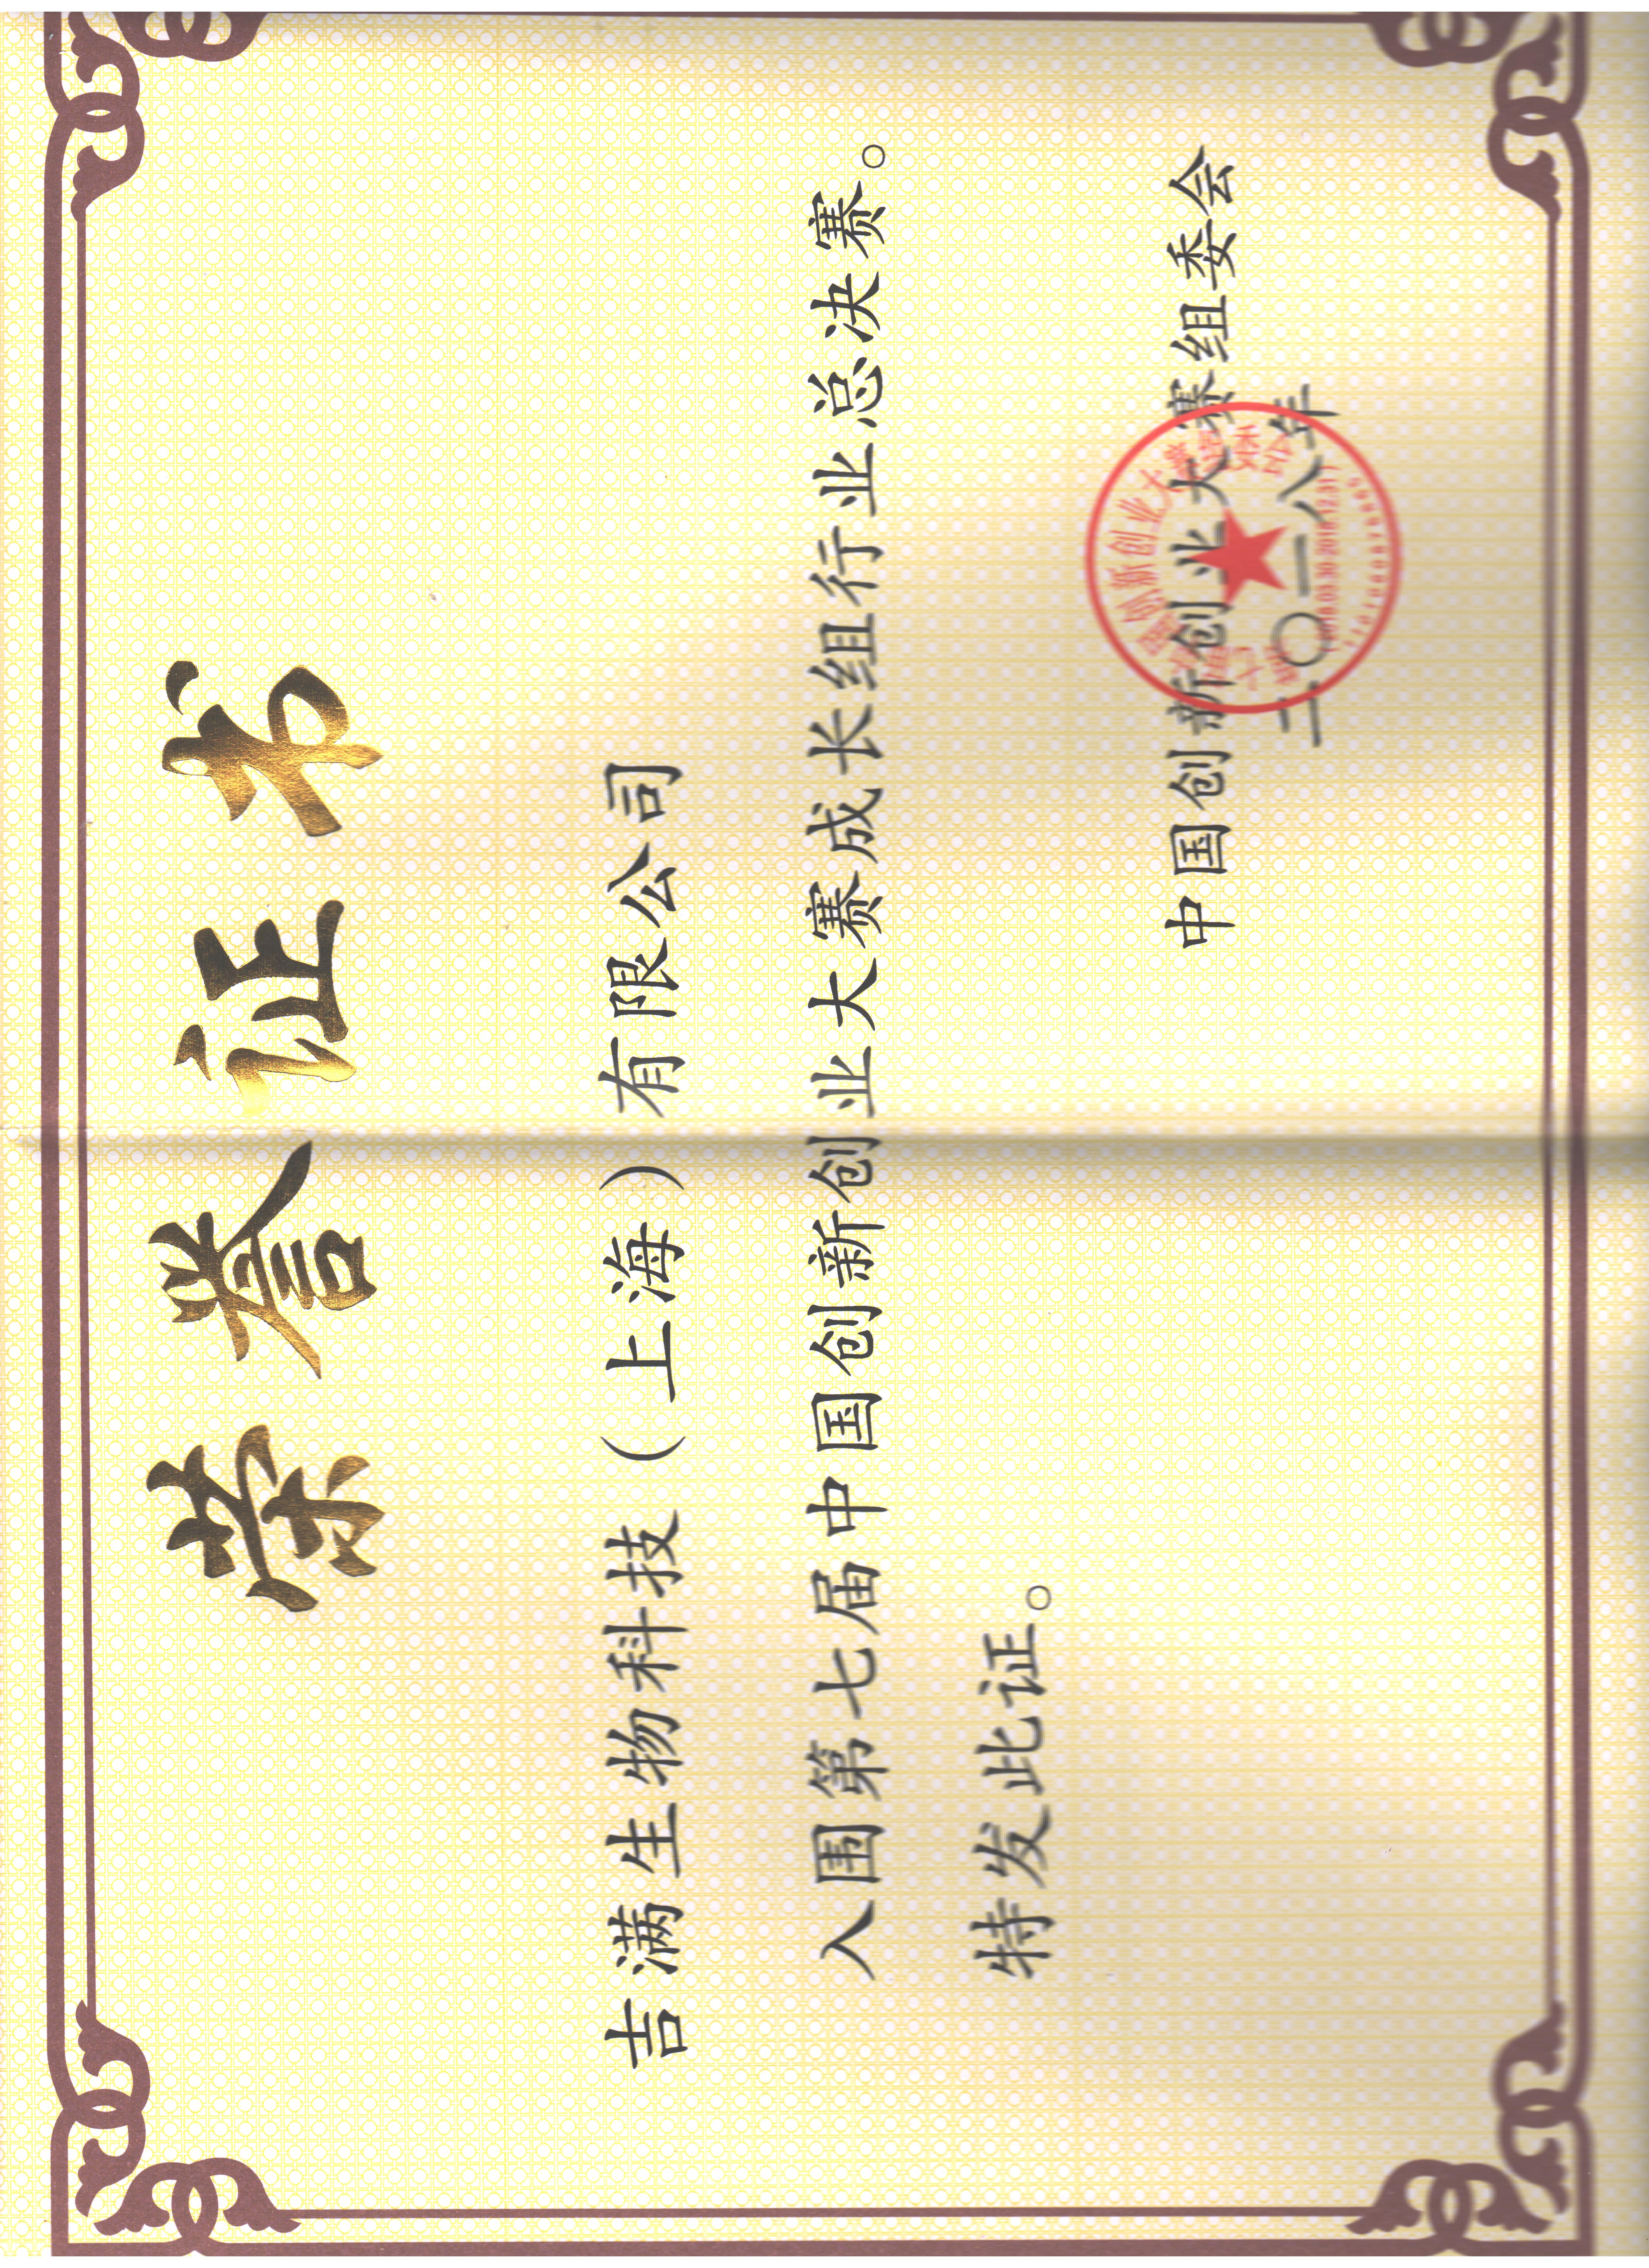 荣誉证书
吉满生物科技（上海）有限公司
入围第七届中国创新创业大赛成长组行业总决赛。
特发此证。
中国创新创业大赛组委会
二〇一八年